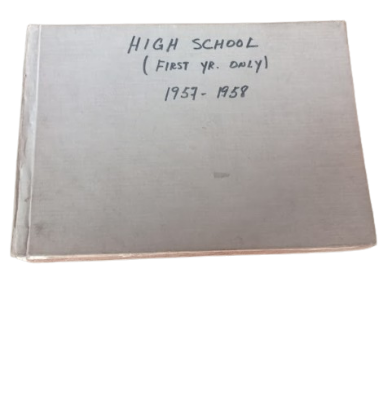 HIGH SCHOOL
(FIRST YR. ONLY)
1957-1958